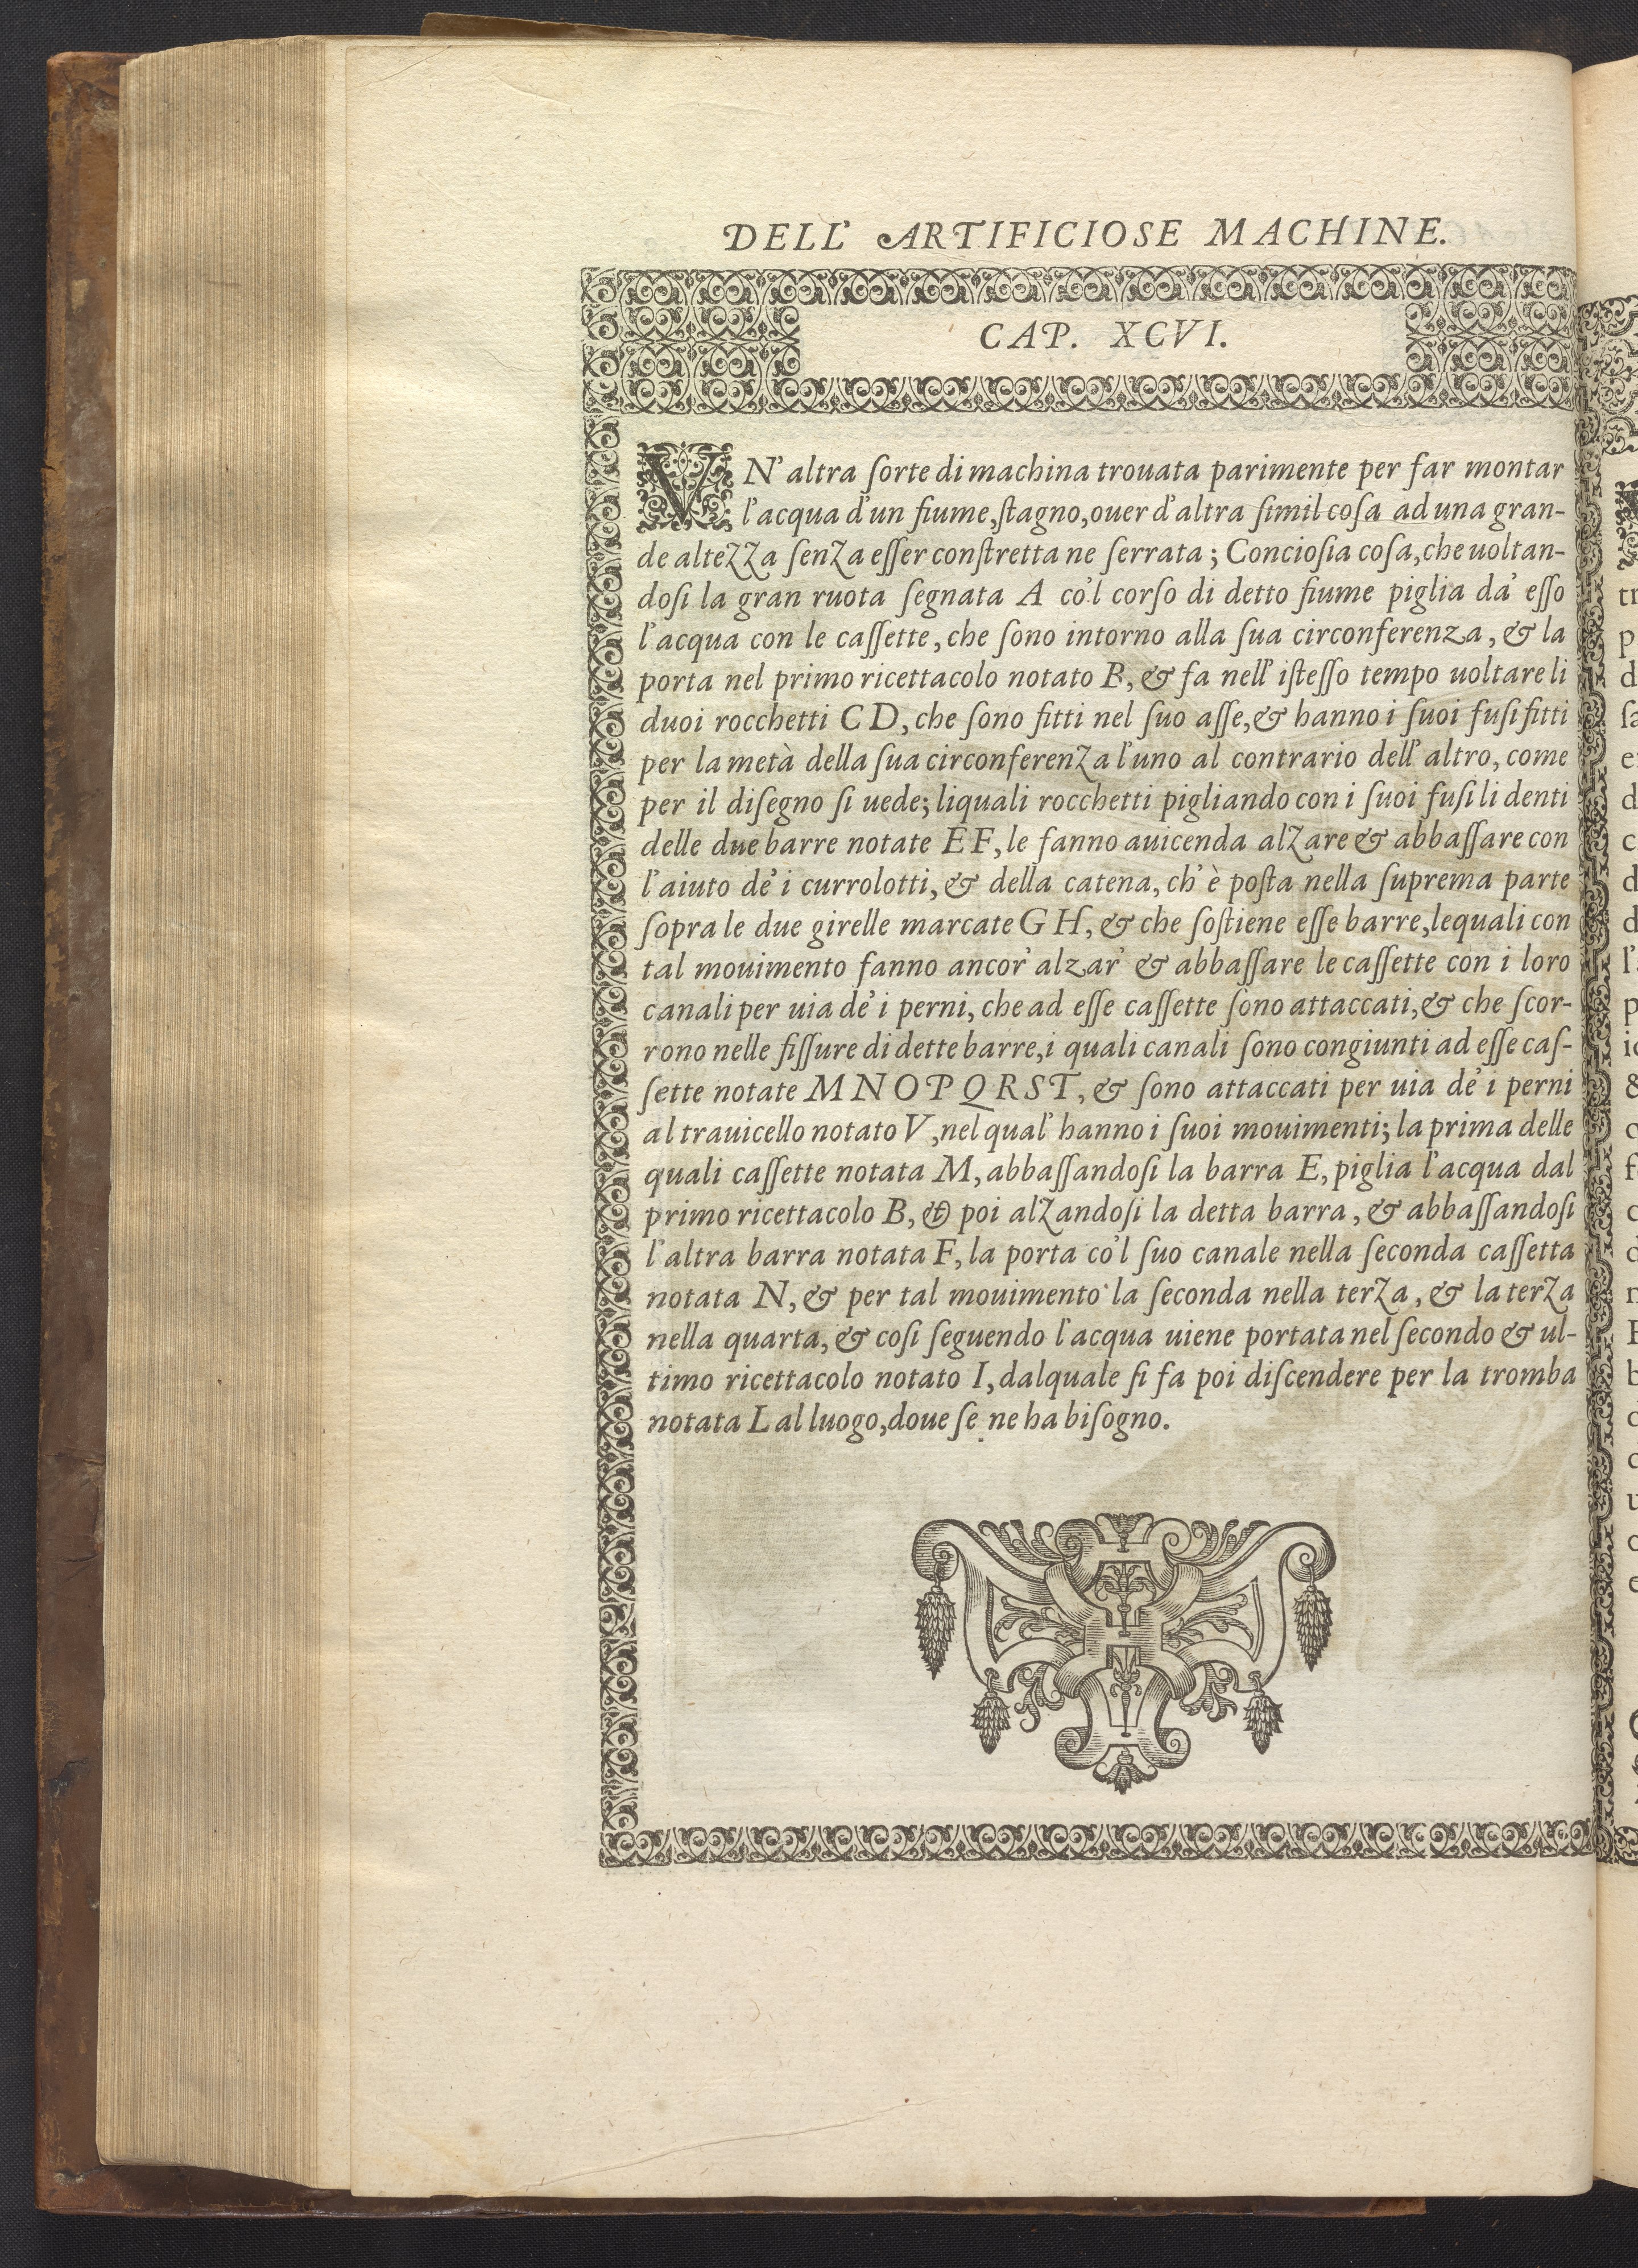 DELL' ARTIFICIOSE MACHINE.
CAP. XCVI.
VN' altra ſorte di machina trouata parimente per far montar
l'acqua d'un fiume, ſtagno, ouer d'altra ſimil coſa ad una gran-
de altezza ſenza eſſer conſtretta ne ſerrata; Concioſia coſa, che uoltan-
doſi la gran ruota ſegnata A co'l corſo di detto fiume piglia da' eſſo
l'acqua con le caſſette, che ſono intorno alla ſua circonferenza, & la
porta nel primo ricettacolo notato B, & fa nell' iſteſſo tempo uoltare li
duoi rocchetti C D, che ſono fitti nel ſuo aſſe, & hanno i ſuoi fuſi fitti
per la metà della ſua circonferenza l'uno al contrario dell' altro, come
per il diſegno ſi uede; liquali rocchetti pigliando con i ſuoi fuſi li denti
delle due barre notate E F, le fanno auicenda alzare & abbaſſare con
l'aiuto de' i currolotti, & della catena, ch' è poſta nella ſuprema parte
ſopra le due girelle marcate G H, & che ſoſtiene eſſe barre, lequali con
tal mouimento fanno ancor' alzar' & abbaſſare le caſſette con i loro
canali per uia de' i perni, che ad eſſe caſſette ſono attaccati, & che ſcor-
rono nelle fiſſure di dette barre, i quali canali ſono congiunti ad eſſe caſ-
ſette notate M N O P Q R S T, & ſono attaccati per uia de' i perni
al trauicello notato V, nel qual' hanno i ſuoi mouimenti; la prima delle
quali caſſette notata M, abbaſſandoſi la barra E, piglia l'acqua dal
primo ricettacolo B, & poi alzandoſi la detta barra, & abbaſſandoſi
l'altra barra notata F, la porta co'l ſuo canale nella ſeconda caſſetta
notata N, & per tal mouimento la ſeconda nella terza, & la terza
nella quarta, & coſi ſeguendo l'acqua uiene portata nel ſecondo & ul-
timo ricettacolo notato I, dalquale ſi fa poi diſcendere per la tromba
notata L al luogo, doue ſe ne ha biſogno.